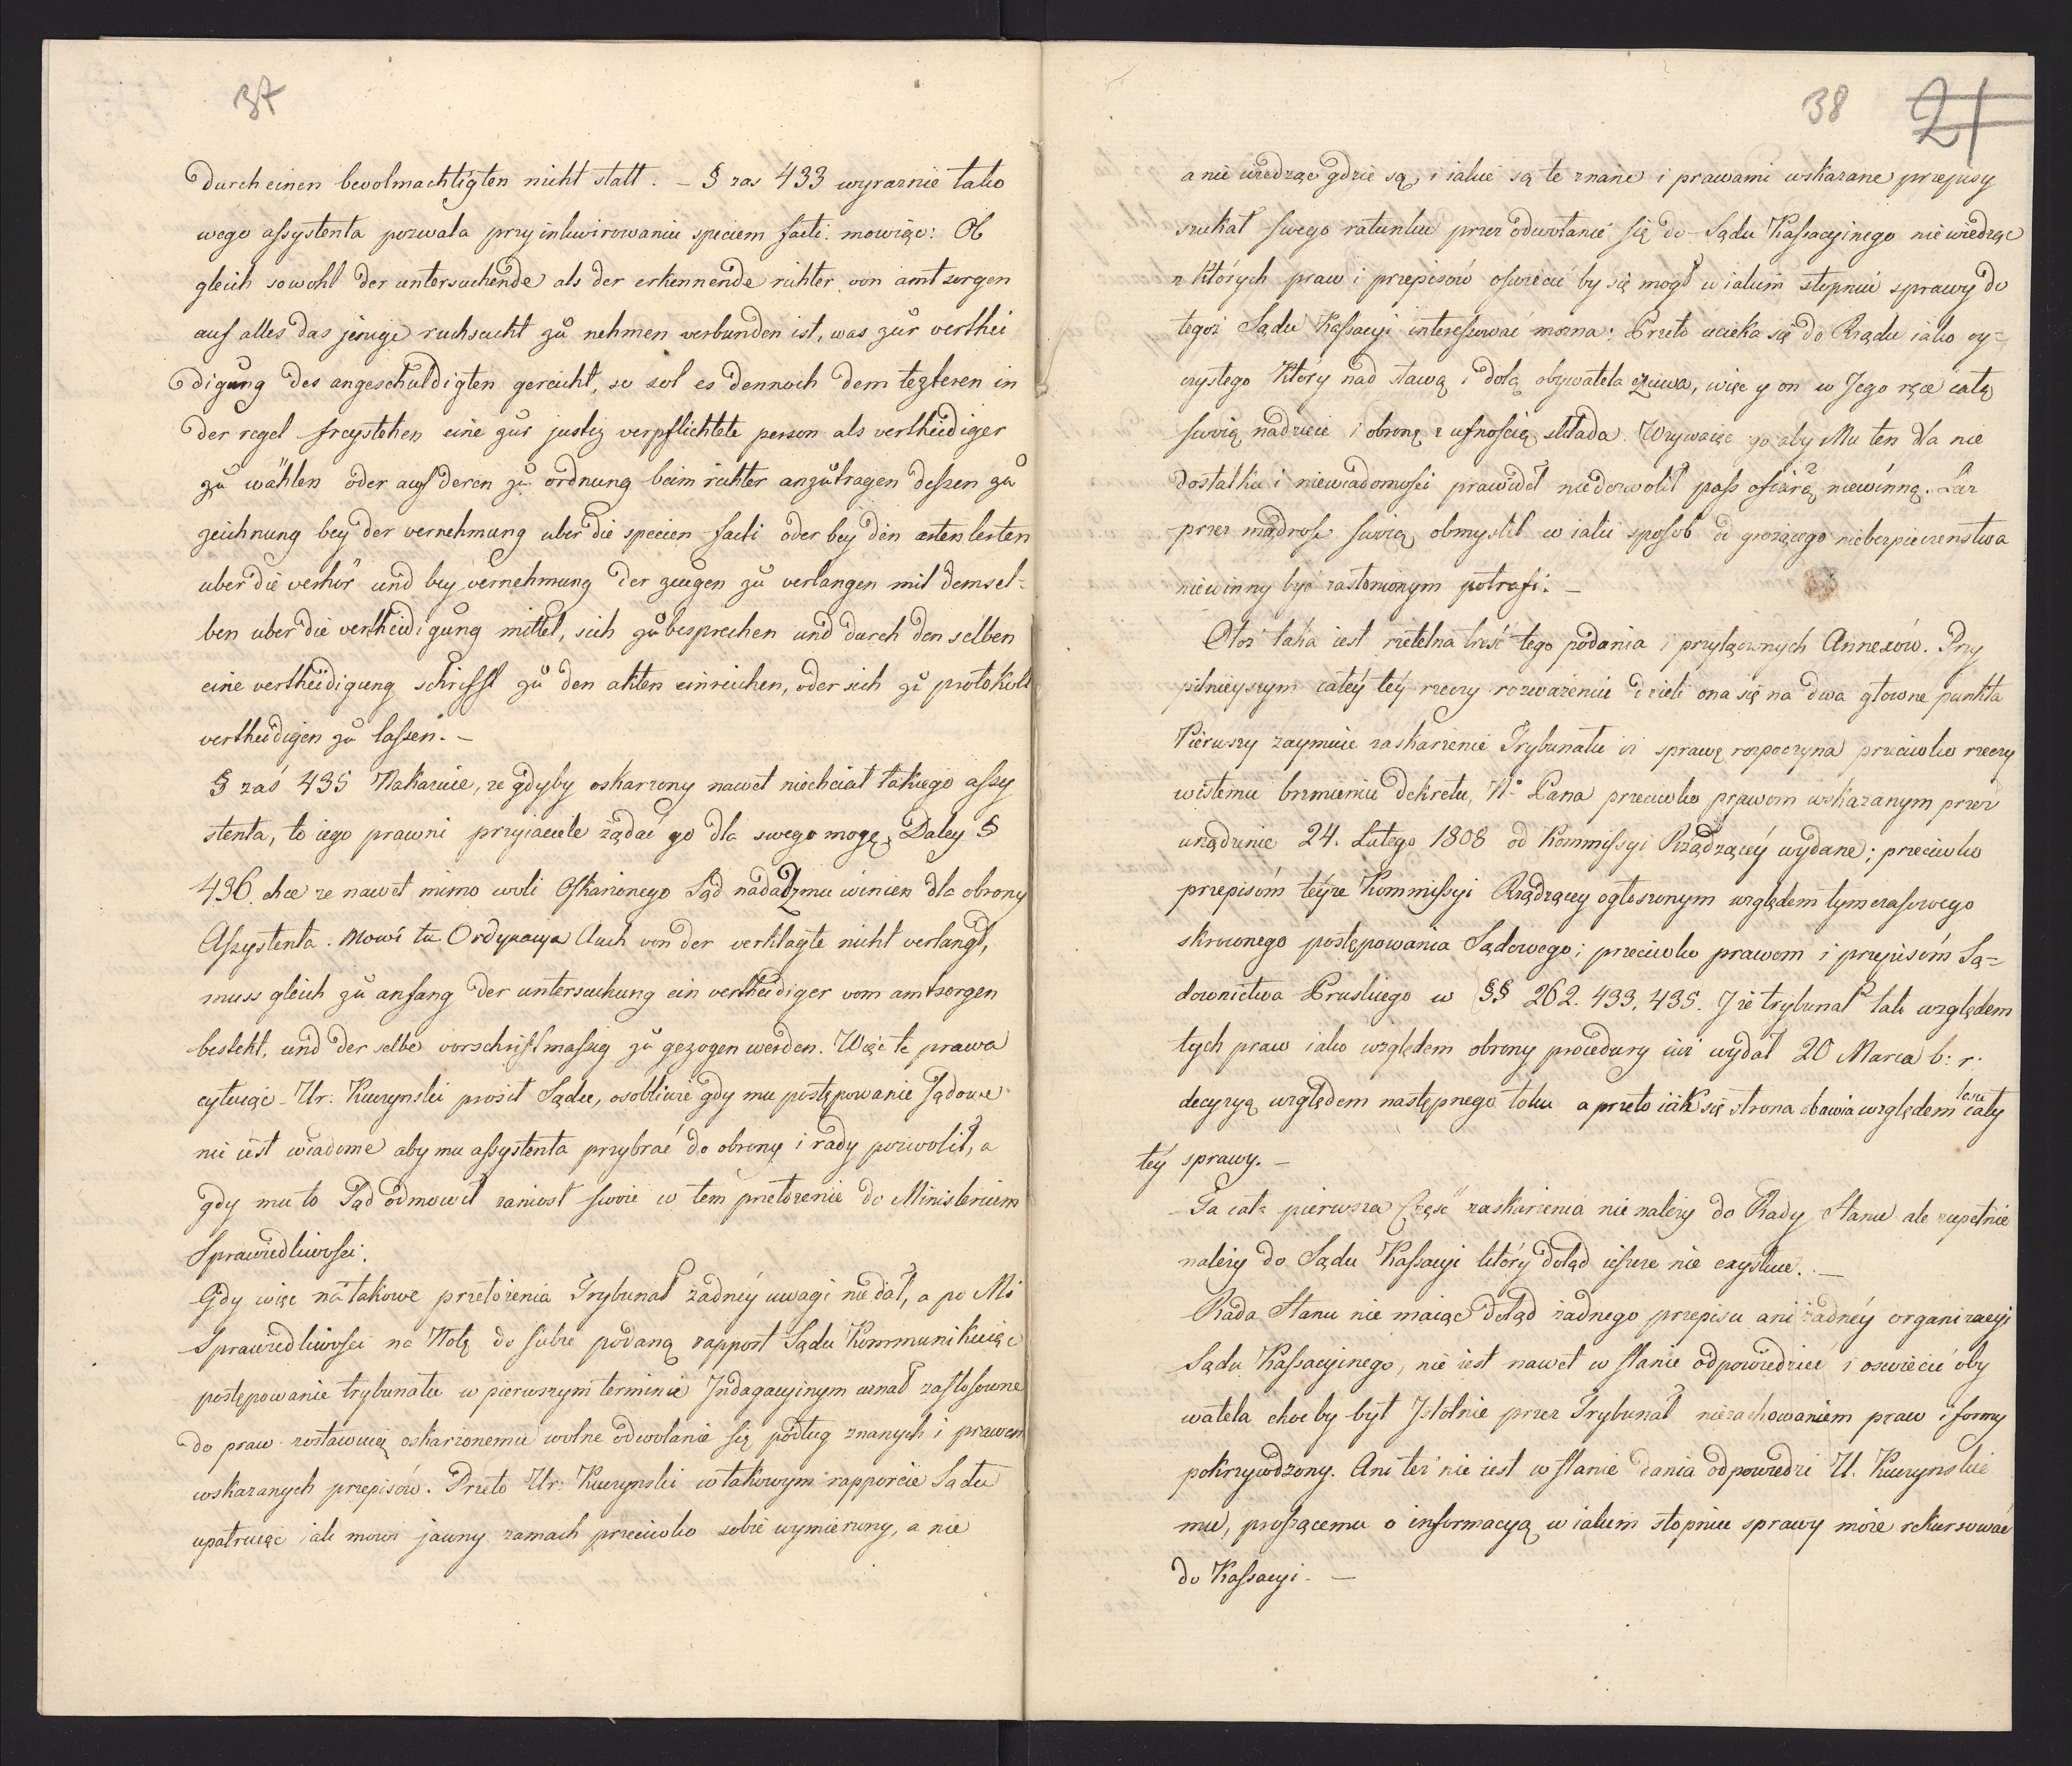 37
durch einen bevolmachtigten nicht statt. – § zas 433 wyraznie tako
wego assystenta pozwala przy inkwirowaniu speciem facti. mowiąc: Ob
gleich sowohl der untersuchende als der erkennende richter von amt sorgen
auf alles das jenige ruchsucht zů nehmen verbunden ist, was zůr verthei
digung des angeschuldigten gereicht, so sol es dennoch dem tezteren in
der regel freystehen eine zůr justiz verpflichtete person als vertheidiger
zů wählen oder auf deren zů ordnung beim richter anzůtragen dessen zů
zeichnung bey der vernehmung uber die specien facti oder bey den arten lesten
uber die verhör und bey vernehmung der zeugen zů verlangen mit demsel-
ben uber die vertheidigung mittel, sich zů besprechen und durch den selben
eine vertheidigung schrifft zů den akten einreichen, oder sich zů protokoll
vertheidigen zů lassen. –
§ zaś 435 Nakazuie, ze gdyby oskarzony nawet niechciał takiego assy
stenta, to iego prawni przyiaciele żądać go dla swego mogę, Daley §
436. chce ze nawet mimo woli Oskarzonego Sąd nadadź mu winien dla obrony
Assystenta. Mowi ta Ordynacya Auch von der verklagte nicht verlangt,
muss gleich zů anfang der untersuchung ein vertheidiger vom amtsorgen
bestehlt, und der selbe vorschriftmassig zů gezogen werden. Więc te prawa
cytuiąc Ur: Kuczynski prosił Sądu, osobliwie gdy mu postępowanie Sądowe
nie iest wiadome aby mu assystenta przybrać do obrony i rady pozwolił, a
gdy mu to Sąd odmowił zaniosł swoie w tem przełozenie do Ministerium
Sprawiedliwosci.
Gdy więc na takowe przełożenia Trybunał żadnéy uwagi nie dał, a po Mi
Sprawiedliwosci na Notę do siebie podaną rapport Sądu Kommunikuiąc
postępowanie trybunału w pierwszym terminie Indagacyinym uznał zastosowne
do praw zostawuię oskarzonemu wolne odwołanie się podług znanych i prawem
wskazanych przepisów. Przeto Ur: Kuczynski w takowym rapporcie Sądu
upatruiąc iak mowi jawny zamach przeciwko sobie wymierzony, a nie
38 21
a nie wiedząc gdzie są, i iakie są te znane i prawami wskazane przepisy
szukał swego ratunku przez odwołanie się do Sądu Kassacyinego nie wiedząc
z których praw i przepisów oswiecić by się mogł w iakim stopniu sprawy do
tegoż Sądu Kassacyi interessować można: Przeto ucieka się do Rządu iako oy-
czystego Który nad sławą i dolą obywatela czuwa, więc y on w Jego ręce całą
swoią nadzieie i obronę z ufnością składa. Wzywaiąc go aby Mu ten dla nie
dostatku i niewiadomosci prawideł nie dozwolił paść ofiarą niewinną. Lecz
przez mądrość swoią obmyslił w iaki sposob od grożącego niebezpieczenstwa
niewinny być zasłonionym potrafi. –
Otoż taka iest rzetelna treść tego podania i przyłącznych Annexów. Przy
pilnieyszym całéy téy rzeczy rozważeniu dzieli ona się na dwa głowne punkta
Pierwszy zaymuie zaskarzenie Trybunału iż sprawę rozpoczyna przeciwko rzeczy
wistemu brzmieniu dekretu, N. Pana przeciwko prawom wskazanym przez
urządzenie 24. Lutego 1808 od Kommissyi Rządzącéy wydane; przeciwko
przepisóm téyze Kommissyi Rządzącey ogłoszonym względem tymczasowego
skroconego postępowania Sądowego; przeciwko prawom i przepisóm Są-
downictwa Pruskiego w §§ 262. 433. 435. I że trybunał tak względem
tych praw iako względem obrony procedury iuż wydał 20 Marca b: r.
decyzyą względem następnego toku a przeto iak się strona obawia względem losu cały
téy sprawy. –
Ta cała pierwsza Część zaskarżenia nie należy do Rady Stanu ale zupełnie
należy do Sądu Kassacyi który dotąd ieszcze nie exystuie. –
Rada Stanu nie maiąc dotąd żadnego przepisu ani żadnéy organizacyi
Sądu Kassacyinego, nie iest nawet w stanie odpowiedzieć i oswiecić oby
watela choc by był Istotnie przez Trybunał niezachowaniem praw i formy
pokrzywdzony. Ani też nie iest w stanie dania odpowiedzi U. Kuczynskie
mu, proszącemu o informacyą w iakim stopniu sprawy może rekursować
do Kassacyi. –